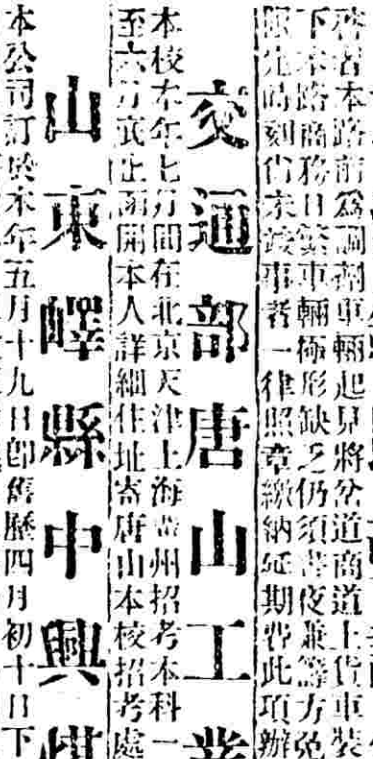 啓者本路前為調劑車輛起見將岔道商道上貨車裝
下本路商務日繁車輛極形缺乏仍須晝夜兼籌方免
時刻尚未竣事者一律照章繳納延期費此項辦
交通部唐山工業
本校本年七月間在北京天津上海州招考本科一
至六月底止開本人詳細住址寄唐山本校招考處
山東嶧縣中興煤
本公司訂於本年五月十九日卽舊歷四月初十日下